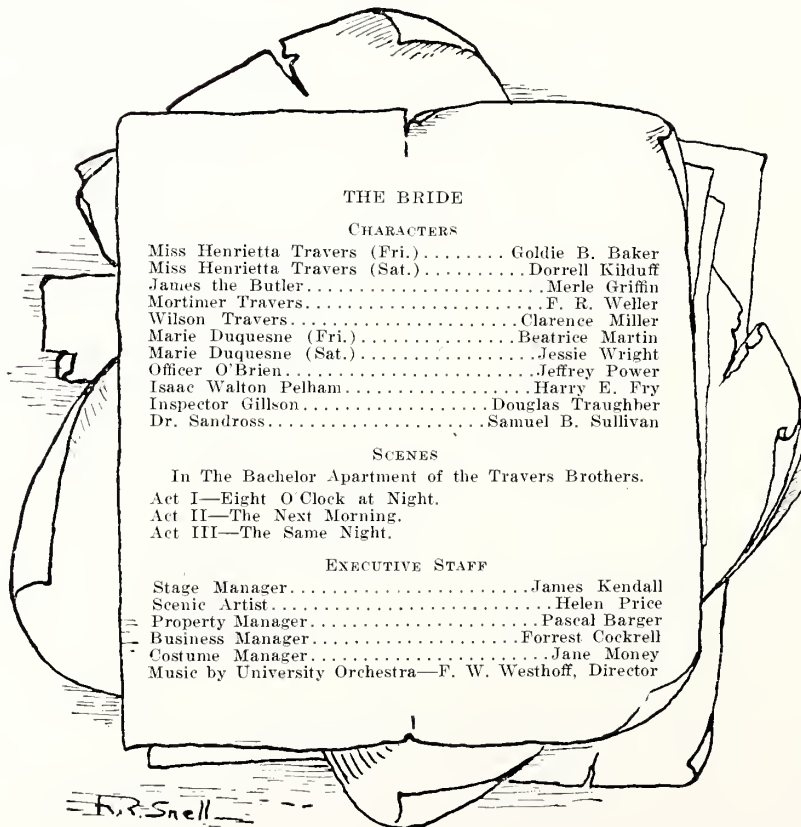 THE BRIDE
CHARACTERS
Miss Henrietta Travers (Fri.)........Goldie B. Baker
Miss Henrietta Travers (Sat.).........Dorrell Kilduff
James the Butler.......................Merle Griffin
Mortimer Travers.......................F. R. Weller
Wilson Travers......................Clarence Miller
Marie Duquesne (Fri.)..............Beatrice Martin
Marie Duquesne (Sat.)................Jessie Wright
Officer O'Brien........................Jeffrey Power
Isaac Walton Pelham..................Harry E. Fry
Inspector Gillson.................Douglas Traughber
Dr. Sandross.....................Samuel B. Sullivan
SCENES
In The Bachelor Apartment of the Travers Brothers.
Act I—Eight O'Clock at Night.
Act II—The Next Morning.
Act III—The Same Night.
EXECUTIVE STAFF
Stage Manager........................James Kendall
Scenic Artist...........................Helen Price
Property Manager.....................Pascal Barger
Business Manager..................Forrest Cockrell
Costume Manager......................Jane Money
Music by University Orchestra—F. W. Westhoff, Director
R.R. Snell